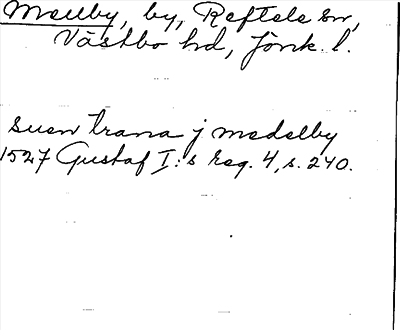 Mellby, by, Reftele sn,
Västbo hd, Jönk. l.
suen trana j medelby
1527 Gustaf I:s reg. 4, s. 240.